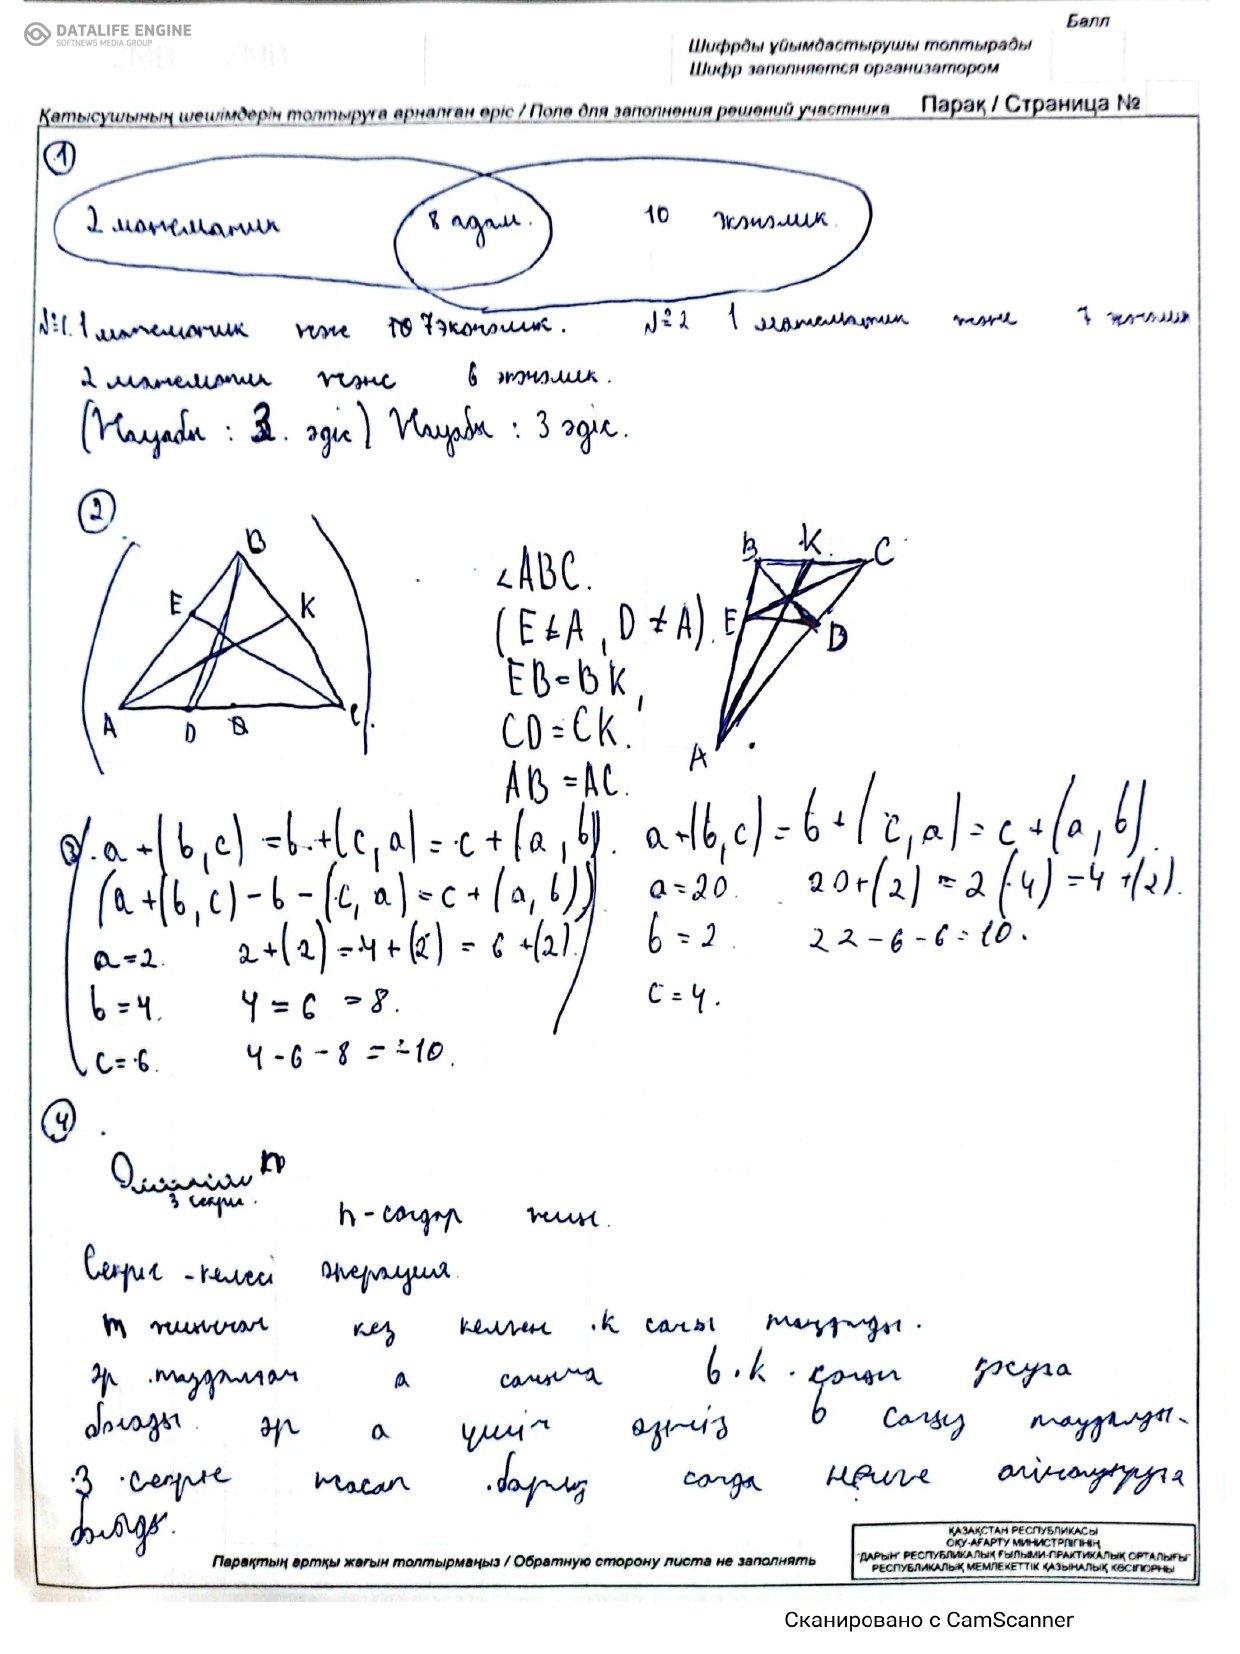 DATALIFE ENGINE
SOFTNEWS MEDIA GROUP
Балл
Шифрды ұйымдастырушы толтырады
Шифр заполняется организатором
Қатысушының шешімдерін толтыруға арналған өріс / Поле для заполнения решений участника Парақ / Страница №2
1
2 математик 8 адам. 10 экономик.
№1. 1 математик және 7 экономик. №2 1 математик және 7
2 математик және 6 экономик.
(Жауабы : 3. әдіс) Жауабы : 3 әдіс.
2
B
E K
A D C
∠ABC.
(E ≠ A, D ≠ A).
EB = BK,
CD = CK.
AB = AC.
B K C
E D
A
3 a + (b, c) = b + (c, a) = c + (a, b). a + (b, c) = b + (c, a) = c + (a, b).
(a + (b, c) - b - (c, a) = c + (a, b)) a = 20. 20 + (2) = 2 (4) = 4 + (2).
a = 2. 2 + (2) = 4 + (2) = 6 + (2). b = 2. 22 - 6 - 6 = 10.
b = 4. 4 = 6 = 8. c = 4.
c = 6. 4 - 6 - 8 = -10.
4
n
3 секіріс.
n - сандар жиын.
Секіріс - келесі операция.
m жиыннан кез келген k саны таңдалды.
әр таңдалған a санына b · k қосуға
болады. әр a үшін өзіміз b санын таңдалды-
3 секіріс жасап барлық санда нөлге айналдыруға
болады.
Парақтың артқы жағын толтырмаңыз / Обратную сторону листа не заполнять
ҚАЗАҚСТАН РЕСПУБЛИКАСЫ
ОҚУ-АҒАРТУ МИНИСТРЛІГІНІҢ
"ДАРЫН" РЕСПУБЛИКАЛЫҚ ҒЫЛЫМИ-ПРАКТИКАЛЫҚ ОРТАЛЫҒЫ"
РЕСПУБЛИКАЛЫҚ МЕМЛЕКЕТТІК ҚАЗЫНАЛЫҚ КӘСІПОРНЫ
Сканировано с CamScanner